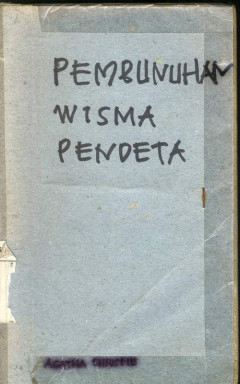 PEMBUNUHAN
WISMA
PENDETA
AGATHA CHRISTIE